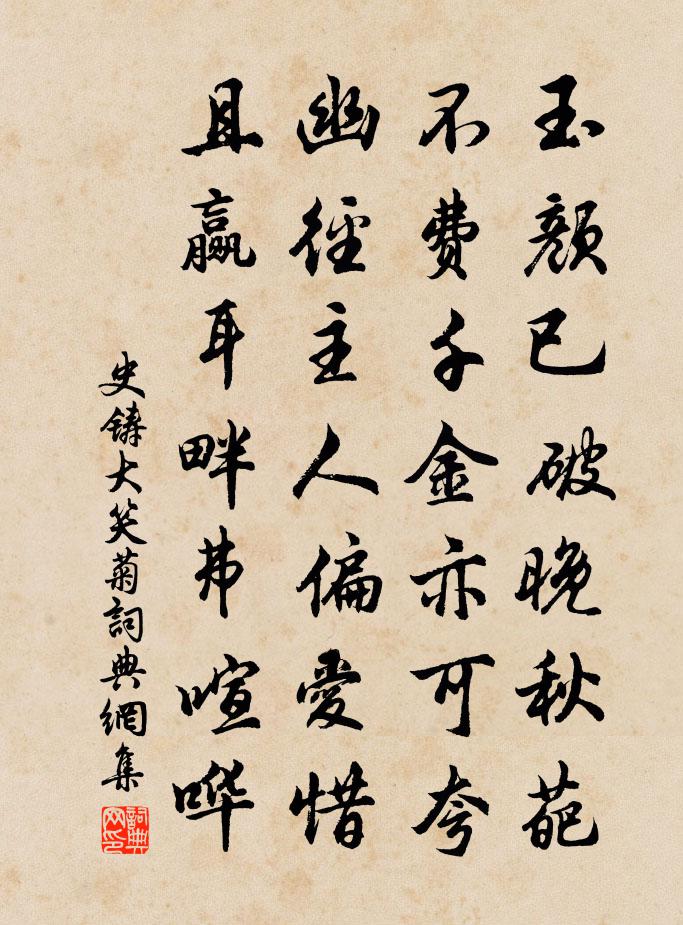 玉颜已破晚秋葩
不费千金亦可夸
幽径主人偏爱惜
且赢耳畔弗喧哗
史铸大笑菊词典网集
词典网印